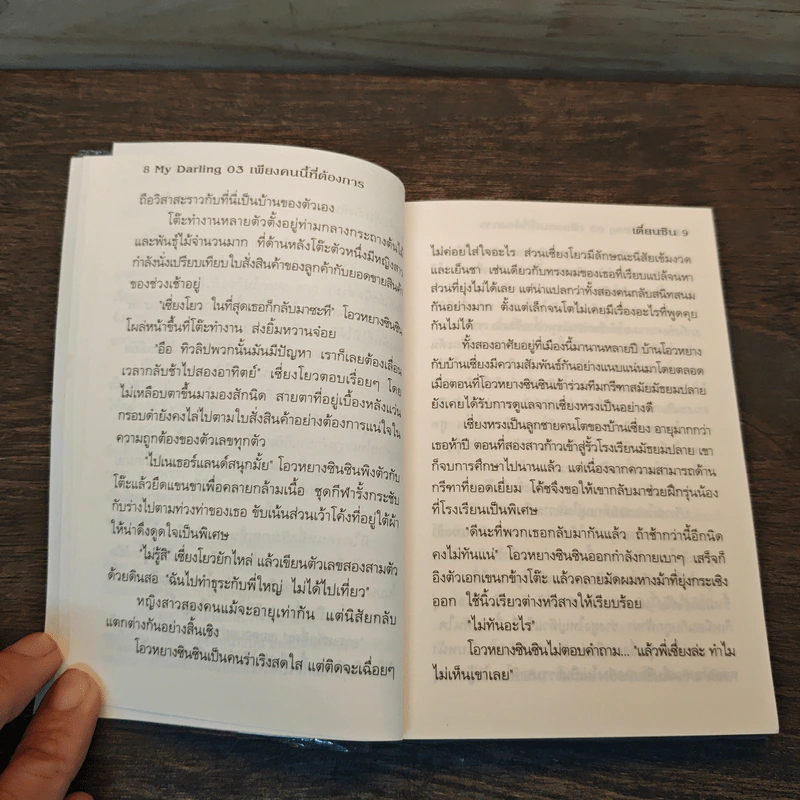 8 My Darling 03 เพียงคนนี้ที่ต้องการ
ถือวิสาสะราวกับที่นี่เป็นบ้านของตัวเอง
โต๊ะทำงานหลายตัวตั้งอยู่ท่ามกลางกระถางต้นไม้
และพันธุ์ไม้จำนวนมาก ที่ด้านหลังโต๊ะตัวหนึ่งมีหญิงสาว
กำลังนั่งเปรียบเทียบใบสั่งสินค้าของลูกค้ากับยอดขายสินค้า
ของช่วงเช้าอยู่
"เซี่ยงโยว ในที่สุดเธอก็กลับมาซะที" โอวหยางซินซิน
โผล่หน้าขึ้นที่โต๊ะทำงาน ส่งยิ้มหวานจ๋อย
"อือ ทิวลิปพวกนั้นมันมีปัญหา เราก็เลยต้องเลื่อน
เวลากลับช้าไปสองอาทิตย์" เซี่ยงโยวตอบเรื่อยๆ โดย
ไม่เหลือบตาขึ้นมามองสักนิด สายตาที่อยู่เบื้องหลังแว่น
กรอบดำยังคงไล่ไปตามใบสั่งสินค้าอย่างต้องการแน่ใจใน
ความถูกต้องของตัวเลขทุกตัว
"ไปเนเธอร์แลนด์สนุกมั้ย" โอวหยางซินซินพิงตัวกับ
โต๊ะแล้วยืดแขนขาเพื่อคลายกล้ามเนื้อ ชุดกีฬารั้งกระชับ
กับร่างไปตามท่วงท่าของเธอ ขับเน้นส่วนเว้าโค้งที่อยู่ใต้ผ้า
ให้น่าดึงดูดใจเป็นพิเศษ
"ไม่รู้สิ" เซี่ยงโยวยักไหล่ แล้วเขียนตัวเลขสองสามตัว
ด้วยดินสอ "ฉันไปทำธุระกับพี่ใหญ่ ไม่ได้ไปเที่ยว"
หญิงสาวสองคนแม้จะอายุเท่ากัน แต่นิสัยกลับ
แตกต่างกันอย่างสิ้นเชิง
โอวหยางซินซินเป็นคนร่าเริงสดใส แต่ติดจะเฉื่อยๆ
เตี่ยนซิน 9
ไม่ค่อยใส่ใจอะไร ส่วนเซี่ยงโยวมีลักษณะนิสัยเข้มงวด
และเย็นชา เช่นเดียวกับทรงผมของเธอที่เรียบแปล้จนหา
ส่วนที่ยุ่งไม่ได้เลย แต่น่าแปลกว่าทั้งสองคนกลับสนิทสนม
กันอย่างมาก ตั้งแต่เล็กจนโตไม่เคยมีเรื่องอะไรที่พูดคุย
กันไม่ได้
ทั้งสองอาศัยอยู่ที่เมืองนี้มานานหลายปี บ้านโอวหยาง
กับบ้านเซี่ยงมีความสัมพันธ์กันอย่างแนบแน่นมาโดยตลอด
เมื่อตอนที่โอวหยางซินซินเข้าร่วมทีมกรีฑาสมัยมัธยมปลาย
ยังเคยได้รับการดูแลจากเซี่ยงหรงเป็นอย่างดี
เซี่ยงหรงเป็นลูกชายคนโตของบ้านเซี่ยง อายุมากกว่า
เธอห้าปี ตอนที่สองสาวก้าวเข้าสู่รั้วโรงเรียนมัธยมปลาย เขา
ก็จบการศึกษาไปนานแล้ว แต่เนื่องจากความสามารถด้าน
กรีฑาที่ยอดเยี่ยม โค้ชจึงขอให้เขากลับมาช่วยฝึกรุ่นน้อง
ที่โรงเรียนเป็นพิเศษ
"ดีนะที่พวกเธอกลับมากันแล้ว ถ้าช้ากว่านี้อีกนิด
คงไม่ทันแน่" โอวหยางซินซินออกกำลังกายเบาๆ เสร็จก็
อิงตัวเอกเขนกข้างโต๊ะ แล้วคลายมัดผมหางม้าที่ยุ่งกระเซิง
ออก ใช้นิ้วเรียวต่างหวีสางให้เรียบร้อย
"ไม่ทันอะไร"
โอวหยางซินซินไม่ตอบคำถาม... "แล้วพี่เซี่ยงล่ะ ทำไม
ไม่เห็นเขาเลย"